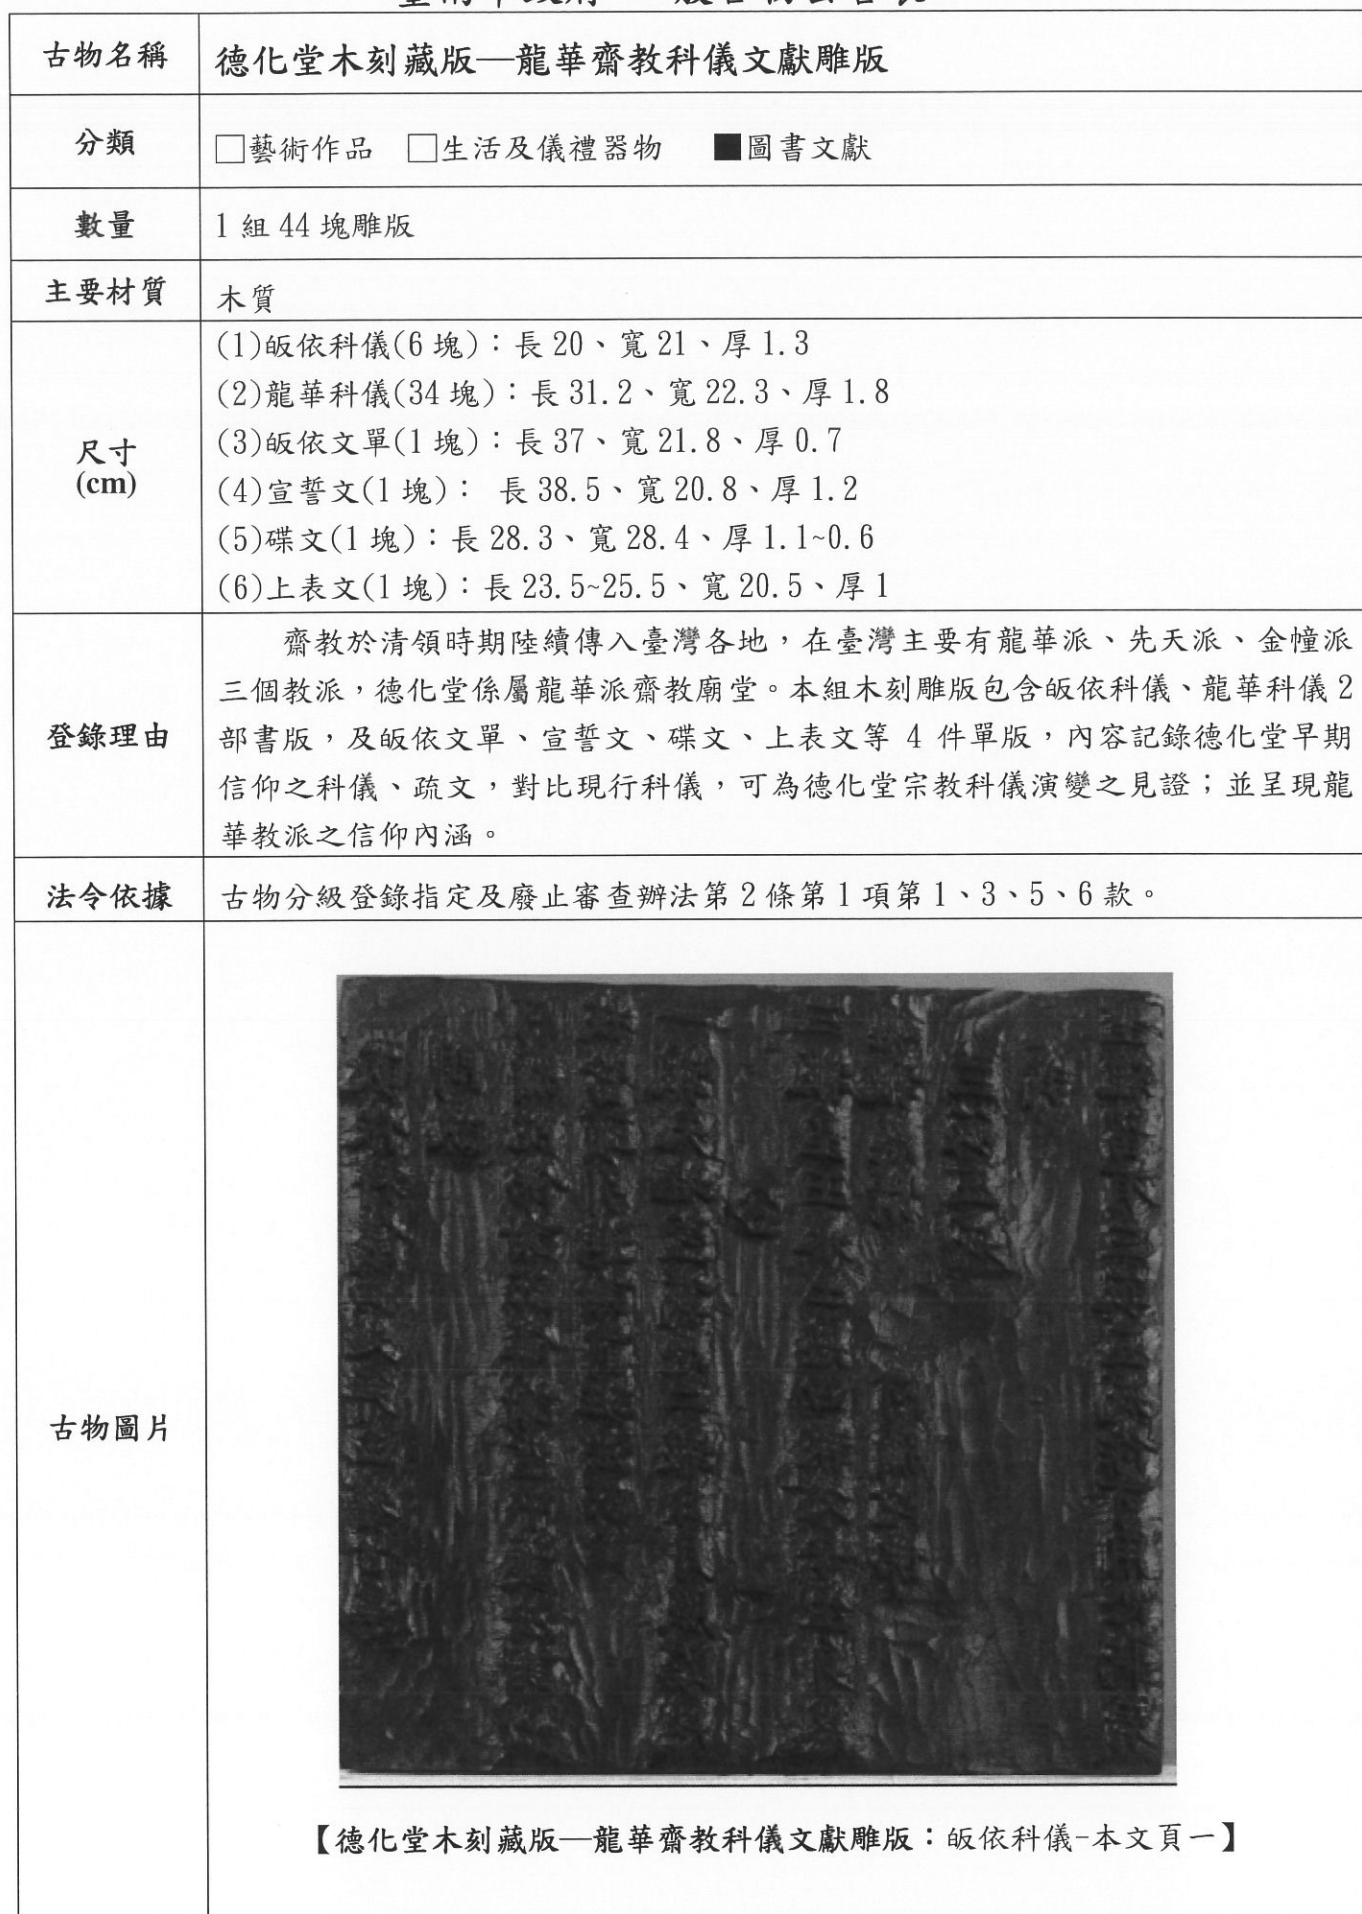 古物名稱
德化堂木刻藏版—龍華齋教科儀文獻雕版
分類
□藝術作品 □生活及儀禮器物 ■圖書文獻
數量
1 組 44 塊雕版
主要材質
木質
尺寸
(cm)
(1)皈依科儀(6 塊)：長 20、寬 21、厚 1.3
(2)龍華科儀(34 塊)：長 31.2、寬 22.3、厚 1.8
(3)皈依文單(1 塊)：長 37、寬 21.8、厚 0.7
(4)宣誓文(1 塊)： 長 38.5、寬 20.8、厚 1.2
(5)碟文(1 塊)：長 28.3、寬 28.4、厚 1.1~0.6
(6)上表文(1 塊)：長 23.5~25.5、寬 20.5、厚 1
登錄理由
齋教於清領時期陸續傳入臺灣各地，在臺灣主要有龍華派、先天派、金幢派
三個教派，德化堂係屬龍華派齋教廟堂。本組木刻雕版包含皈依科儀、龍華科儀 2
部書版，及皈依文單、宣誓文、碟文、上表文等 4 件單版，內容記錄德化堂早期
信仰之科儀、疏文，對比現行科儀，可為德化堂宗教科儀演變之見證；並呈現龍
華教派之信仰內涵。
法令依據
古物分級登錄指定及廢止審查辦法第 2 條第 1 項第 1、3、5、6 款。
古物圖片
【德化堂木刻藏版—龍華齋教科儀文獻雕版：皈依科儀-本文頁一】